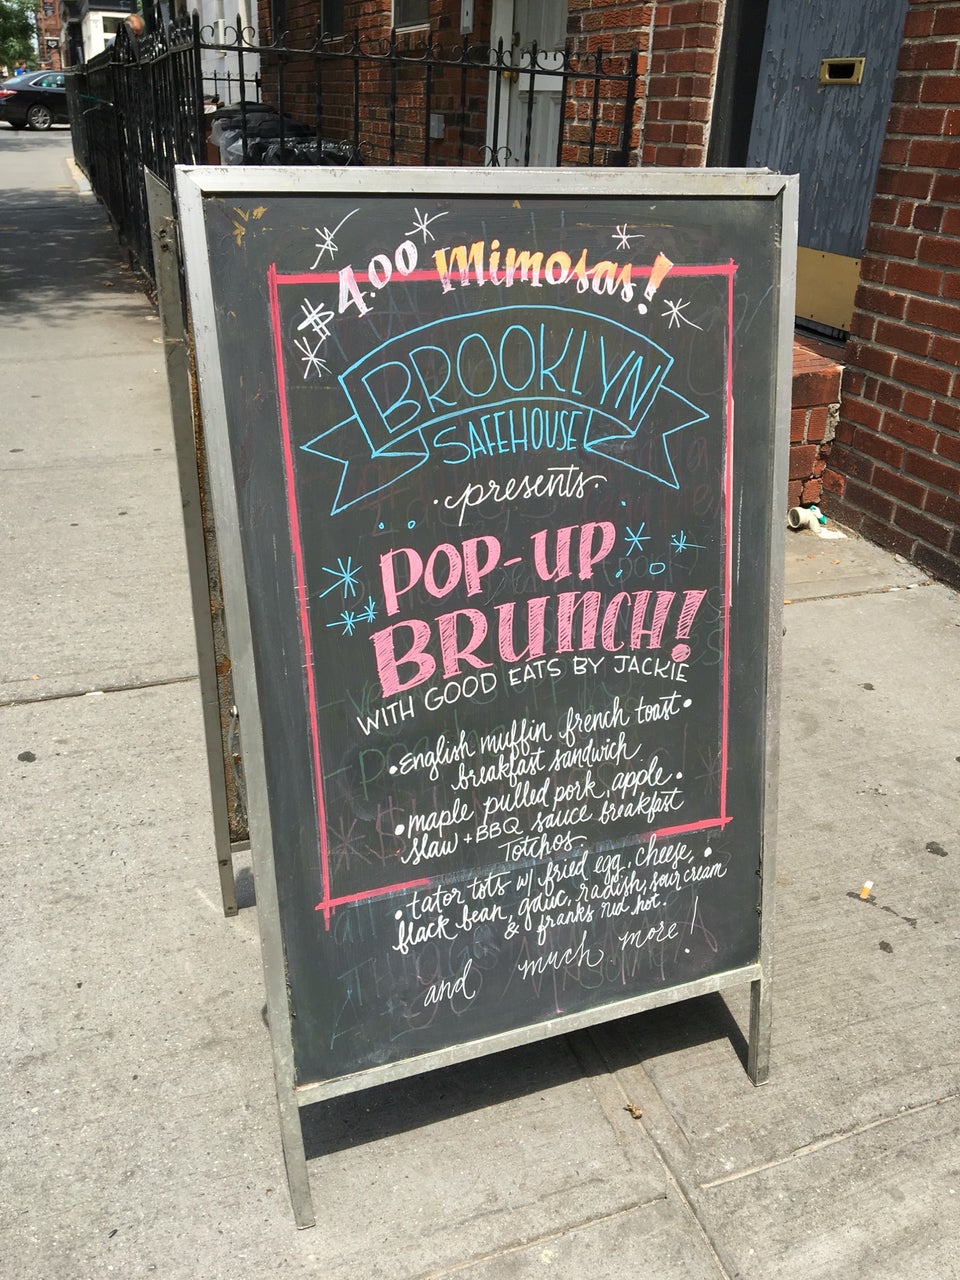 $4.00 Mimosas!
BROOKLYN
SAFEHOUSE
presents
POP-UP
BRUNCH!
WITH GOOD EATS BY JACKIE
• english muffin french toast •
breakfast sandwich
• maple pulled pork, apple •
slaw + BBQ sauce breakfast
Totchos.
• tator tots w/ fried egg, cheese, •
black bean, gauc, radish, sour cream
& franks red hot.
and much more!